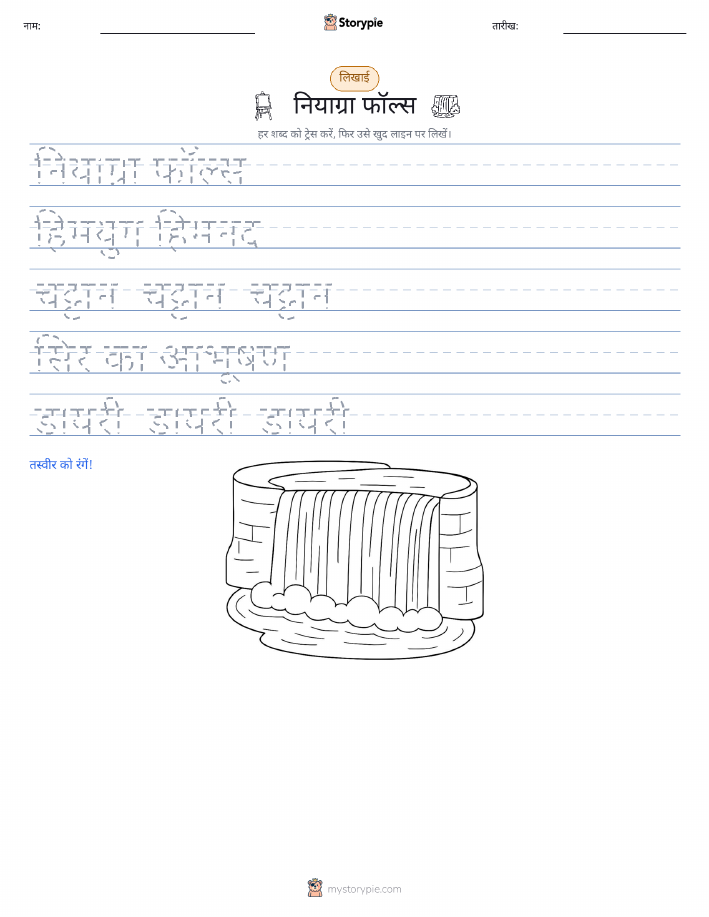 नाम:
Storypie
तारीख:
लिखाई
नियाग्रा फॉल्स
हर शब्द को ट्रेस करें, फिर उसे खुद लाइन पर लिखें।
नियाग्रा फॉल्स
हिमयुग हिमनद
चट्टान चट्टान चट्टान
सिर का आभूषण
डायरी डायरी डायरी
तस्वीर को रंगें!
mystorypie.com